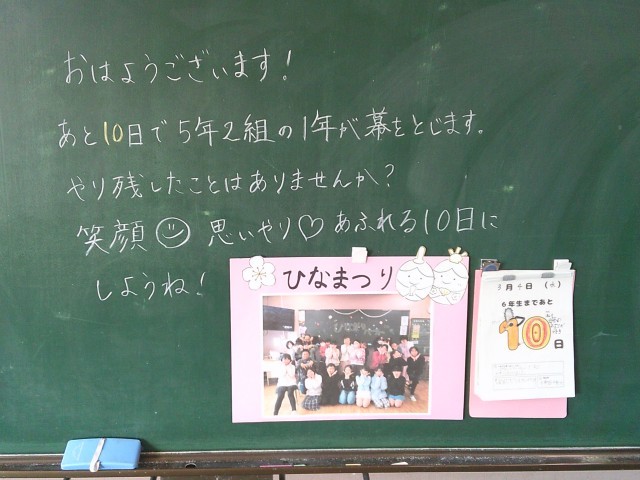 おはようございます!
あと10日で5年2組の1年が幕をとじます。
やり残したことはありませんか?
笑顔☺思いやり♡あふれる10日に
しようね!
ひなまつり
3月4日(水)
6年生まであと
10日